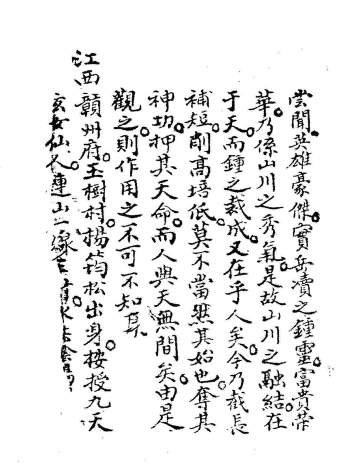 嘗聞英雄豪傑實岳瀆之鍾靈富貴榮
華乃係山川之秀氣是故山川之融結在
于天而鍾之裁成又在乎人矣今乃截長
補短削高培低莫不當然其始也奪其
神功押其天命而人與天無間矣由是
觀之則作用之不可不知其
江西贛州府玉樹村楊筠松出身按授九天
玄女仙人連山二